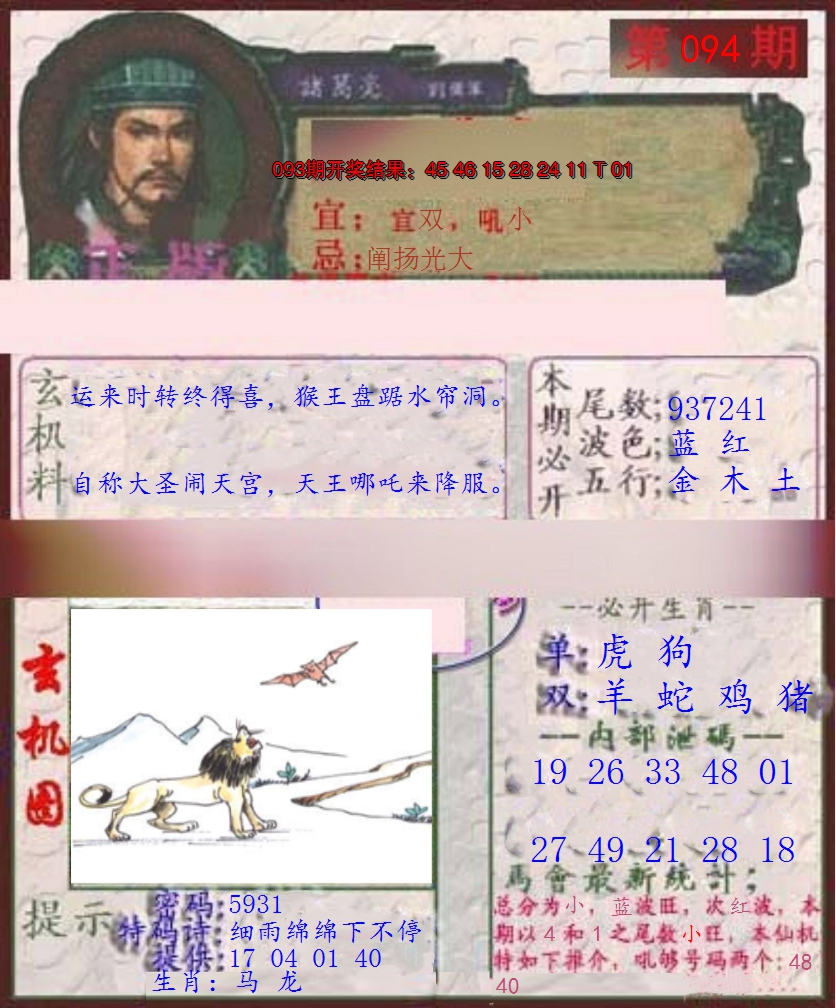 第 094 期
諸葛亮
093期开奖结果：45 46 15 28 24 11 T 01
宜；宜双，吼小
忌；阐扬光大
正版
玄机料
运来时转终得喜，猴王盘踞水帘洞。
自称大圣闹天宫，天王哪吒来降服。
本期必开
尾数;937241
波色;蓝 红
五行;金 木 土
玄机图
--必开生肖--
单:虎 狗
双:羊 蛇 鸡 猪
--内部泄碼--
19 26 33 48 01
27 49 21 28 18
馬會最新统計；
总分为小，蓝波旺，次红波，本
期以 4 和 1 之尾数小旺，本仙机
特如下推介，吼够号码两个:48
40
提示
密码:5931
特码诗:细雨绵绵下不停
提供:17 04 01 40
生肖：马 龙